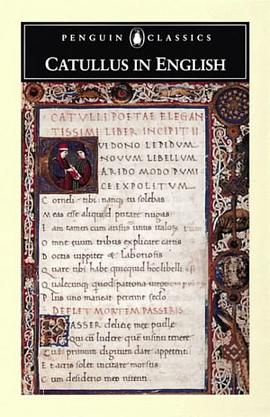 PENGUIN CLASSICS
CATULLUS IN ENGLISH
CATVLLI POETAE ELEGAN
TISSIMI LIBER INCIPIT
VI DONO LEPIDVM
NOVVM LIBELLVM
ARIDO MODO PVMI
CE EXPOLITVM
Corneli tibi nanque tu solebas
Meas esse aliquid putare nugas
Iam tum cum ausus unus italorum
Omne euum tribus explicare cartis
Doctis iuppiter & laboriosis
Quare tibi habe quicquid hoc libelli
Qualecunque quod
Plus uno maneat perenne seclo
DEFLET MORTEM PASSERIS
ASSER delicie mee puelle
Qui cum ludere quem insinu tenere
Cui primum digitum dare appetenti
Et acris solet incitare morsus
Cum desiderio meo nitenti